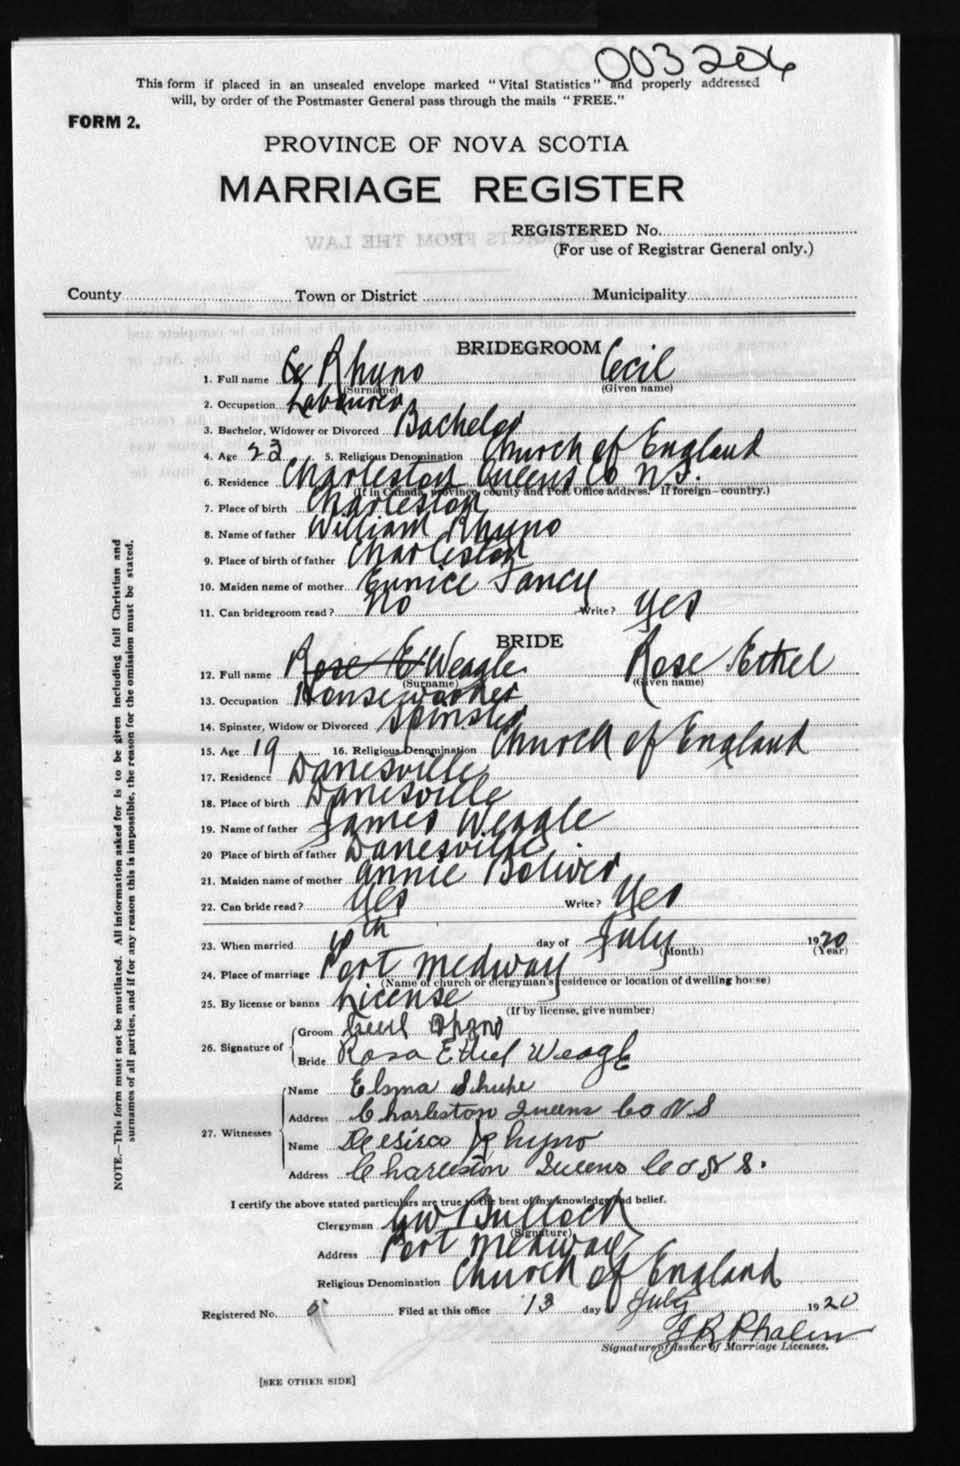 003206
This form if placed in an unsealed envelope marked "Vital Statistics" and properly addressed
will, by order of the Postmaster General pass through the mails "FREE."
FORM 2.
PROVINCE OF NOVA SCOTIA
MARRIAGE REGISTER
REGISTERED No.
(For use of Registrar General only.)
County Town or District Municipality
BRIDEGROOM
1. Full name Rhyno Cecil
(Surname) (Given name)
2. Occupation Labourer
3. Bachelor, Widower or Divorced Bachelor
4. Age 23 5. Religious Denomination Church of England
6. Residence Charleston Queens Co N.S.
(If in Canada, province, county and Post Office address. If foreign—country.)
7. Place of birth Charleston
8. Name of father William Rhyno
9. Place of birth of father Charleston
10. Maiden name of mother Eunice Tancy
11. Can bridegroom read? No Write? Yes
BRIDE
12. Full name Rose E Weagle Rose Ethel
(Surname) (Given name)
13. Occupation Houseworker
14. Spinster, Widow or Divorced Spinster
15. Age 19 16. Religious Denomination Church of England
17. Residence Danesville
18. Place of birth Danesville
19. Name of father James Weagle
20 Place of birth of father Danesville
21. Maiden name of mother Annie Boliver
22. Can bride read? Yes Write? Yes
23. When married 10th day of July 1920
(Month) (Year)
24. Place of marriage Port Medway
(Name of church or clergyman's residence or location of dwelling house)
25. By license or banns License
(If by license, give number)
26. Signature of Groom Cecil Rhyno
Bride Rosa Ethel Weagle
27. Witnesses Name Elsma Shupe
Address Charleston Queens Co N S
Name Rhyno
Address Charleston Queens Co N S.
I certify the above stated particulars are true to the best of my knowledge and belief.
Clergyman GW Bullock
(Signature)
Address Port Medway
Religious Denomination Church of England
Registered No. Filed at this office 13 day of July 1920
J R Phalen
Signature of Issuer of Marriage Licenses.
[SEE OTHER SIDE]
NOTE.—This form must not be mutilated. All information asked for is to be given including full Christian and
surnames of all parties, and if for any reason this is impossible, the reason for the omission must be stated.